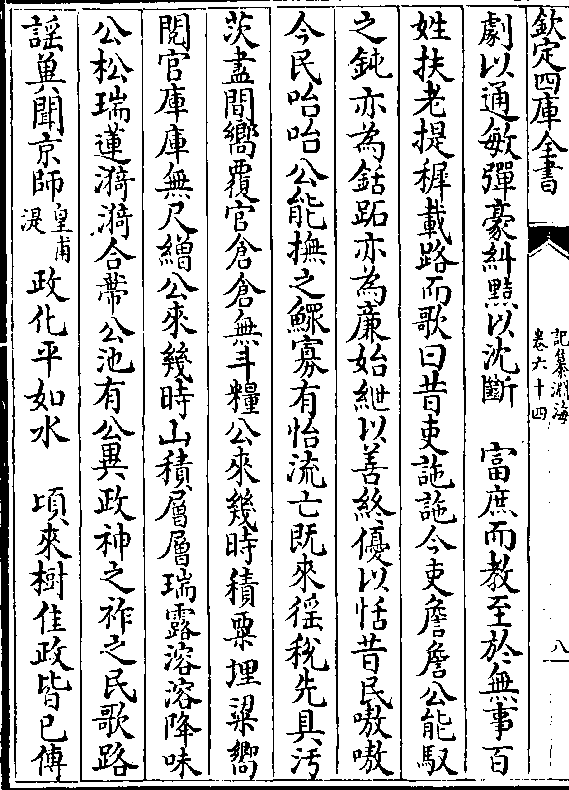 欽定四庫全書
記纂淵海
卷六十四
八
劇以通敏彈豪糾黠以沈斷　富庶而教至於無事百
姓扶老提穉載路而歌曰昔吏訑訑今吏詹詹公能馭
之鈍亦為銛跖亦為廉始紲以善終優以恬昔民嗷嗷
今民咍咍公能撫之鰥寡有怡流亡既來徭稅先具汚
茨盡間嚮覆官倉倉無斗糧公來幾時積粟埋梁嚮
閱官庫庫無尺繒公來幾時山積層層瑞露溶溶降味
公松瑞蓮漪漪合蔕公池有公異政神之祚之民歌路
謡兾聞京師皇甫湜　政化平如水　頃來樹佳政皆已傳